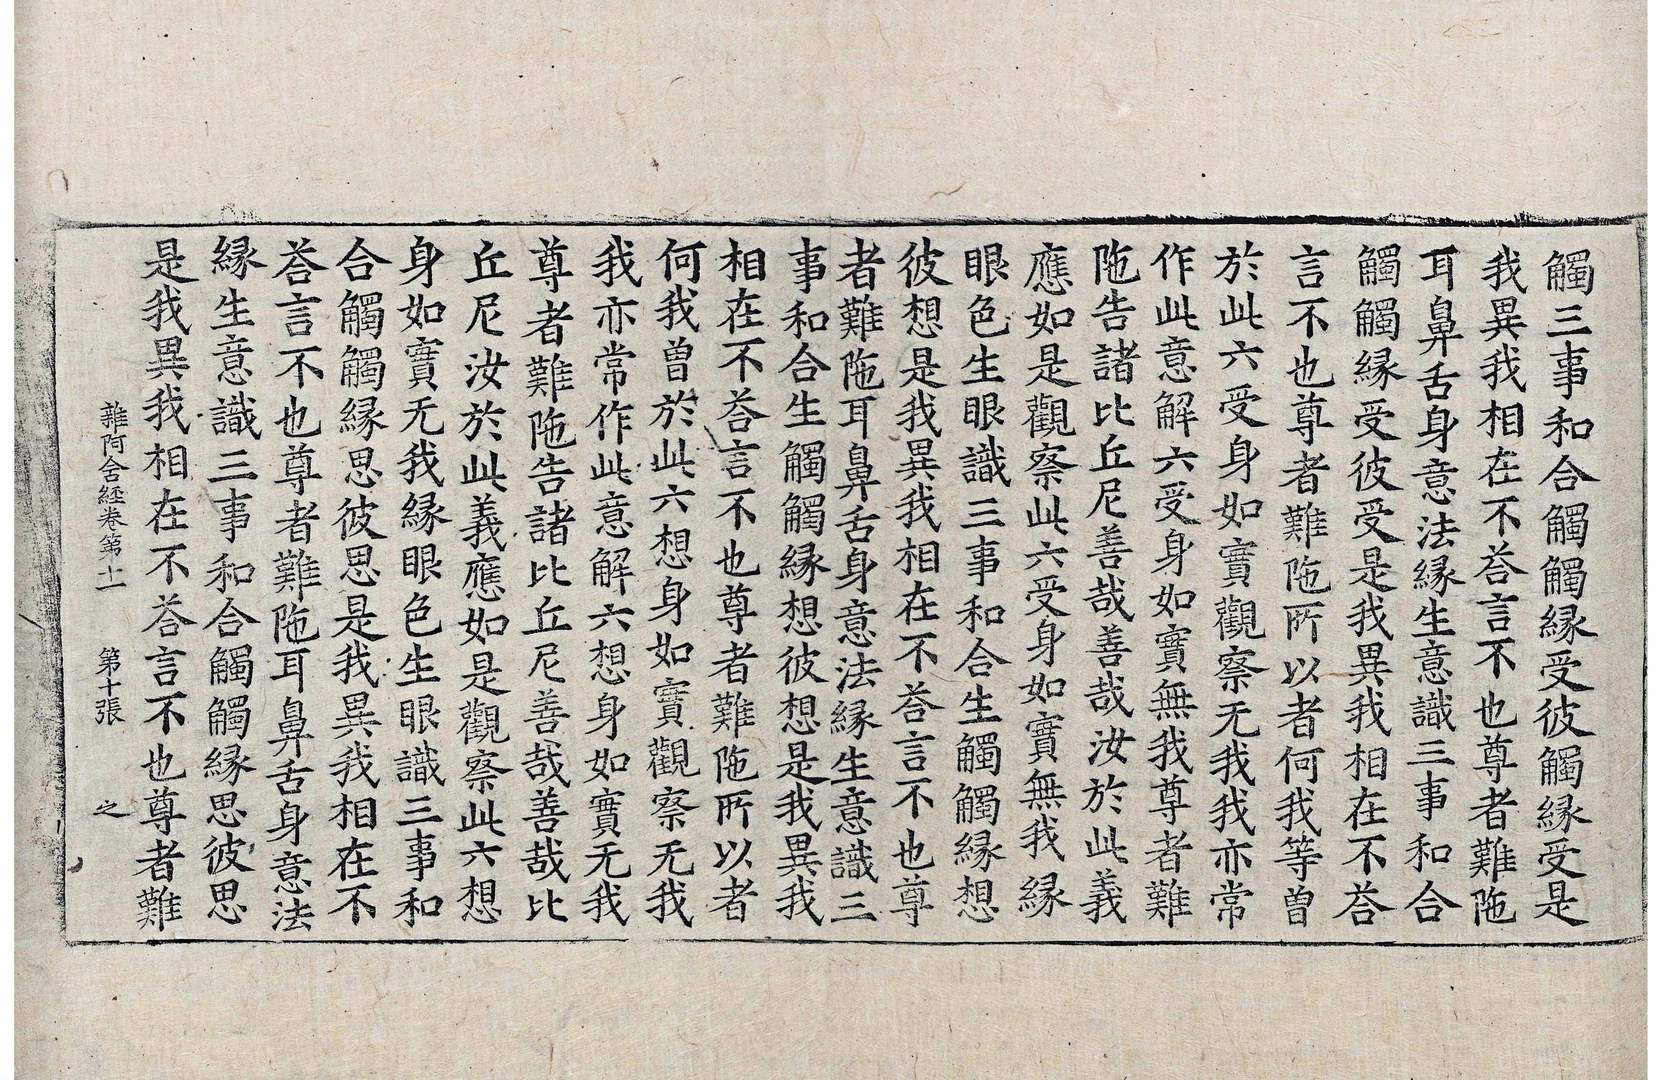 觸三事和合觸觸縁受彼觸縁受是
我異我相在不荅言不也尊者難陁
耳鼻舌身意法縁生意識三事和合
觸觸縁受彼受是我異我相在不荅
言不也尊者難陁所以者何我等曽
於此六受身如實觀察无我我亦常
作此意解六受身如實無我尊者難
陁告諸比丘尼善哉善哉汝於此義
應如是觀察此六受身如實無我縁
眼色生眼識三事和合生觸觸縁想
彼想是我異我相在不荅言不也尊
者難陁耳鼻舌身意法縁生意識三
事和合生觸觸縁想彼想是我異我
相在不荅言不也尊者難陁所以者
何我曽於此六想身如實觀察无我
我亦常作此意解六想身如實无我
尊者難陁告諸比丘尼善哉善哉比
丘尼汝於此義應如是觀察此六想
身如實无我縁眼色生眼識三事和
合觸觸縁思彼思是我異我相在不
荅言不也尊者難陁耳鼻舌身意法
縁生意識三事和合觸觸縁思彼思
是我異我相在不荅言不也尊者難
雜阿含經卷第十一 第十張 之